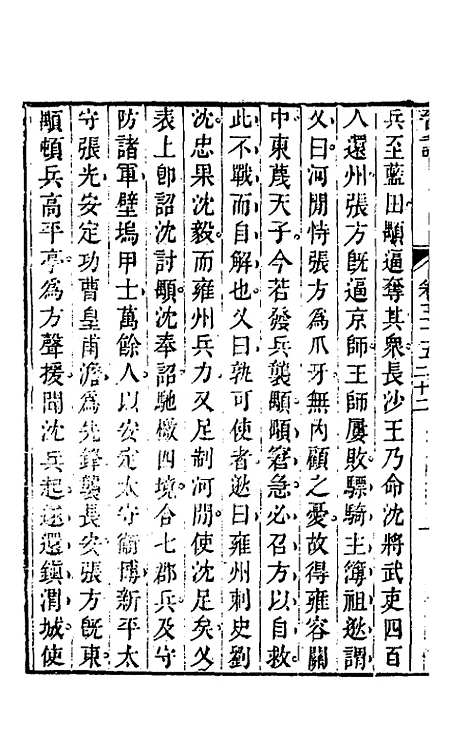 兵至藍田顒逼奪其衆長沙王乃命沈將武吏四百
人還州張方既逼京師王師屢敗驃騎主簿祖逖謂
乂曰河間恃張方爲爪牙無内顧之憂故得雍容關
中東蔑天子今若發兵襲顒顒窘急必召方以自救
此不戰而自解也乂曰孰可使者逖曰雍州刺史劉
沈忠果沈毅而雍州兵力又足制河間使沈足矣乂
表上卽詔沈討顒沈奉詔馳檄四境合七郡兵及守
防諸軍壁塢甲士萬餘人以安定太守衞博新平太
守張光安定功曹皇甫澹爲先鋒襲長安張方既東
顒頓兵高平亭爲方聲援聞沈兵起遂還鎭渭城使